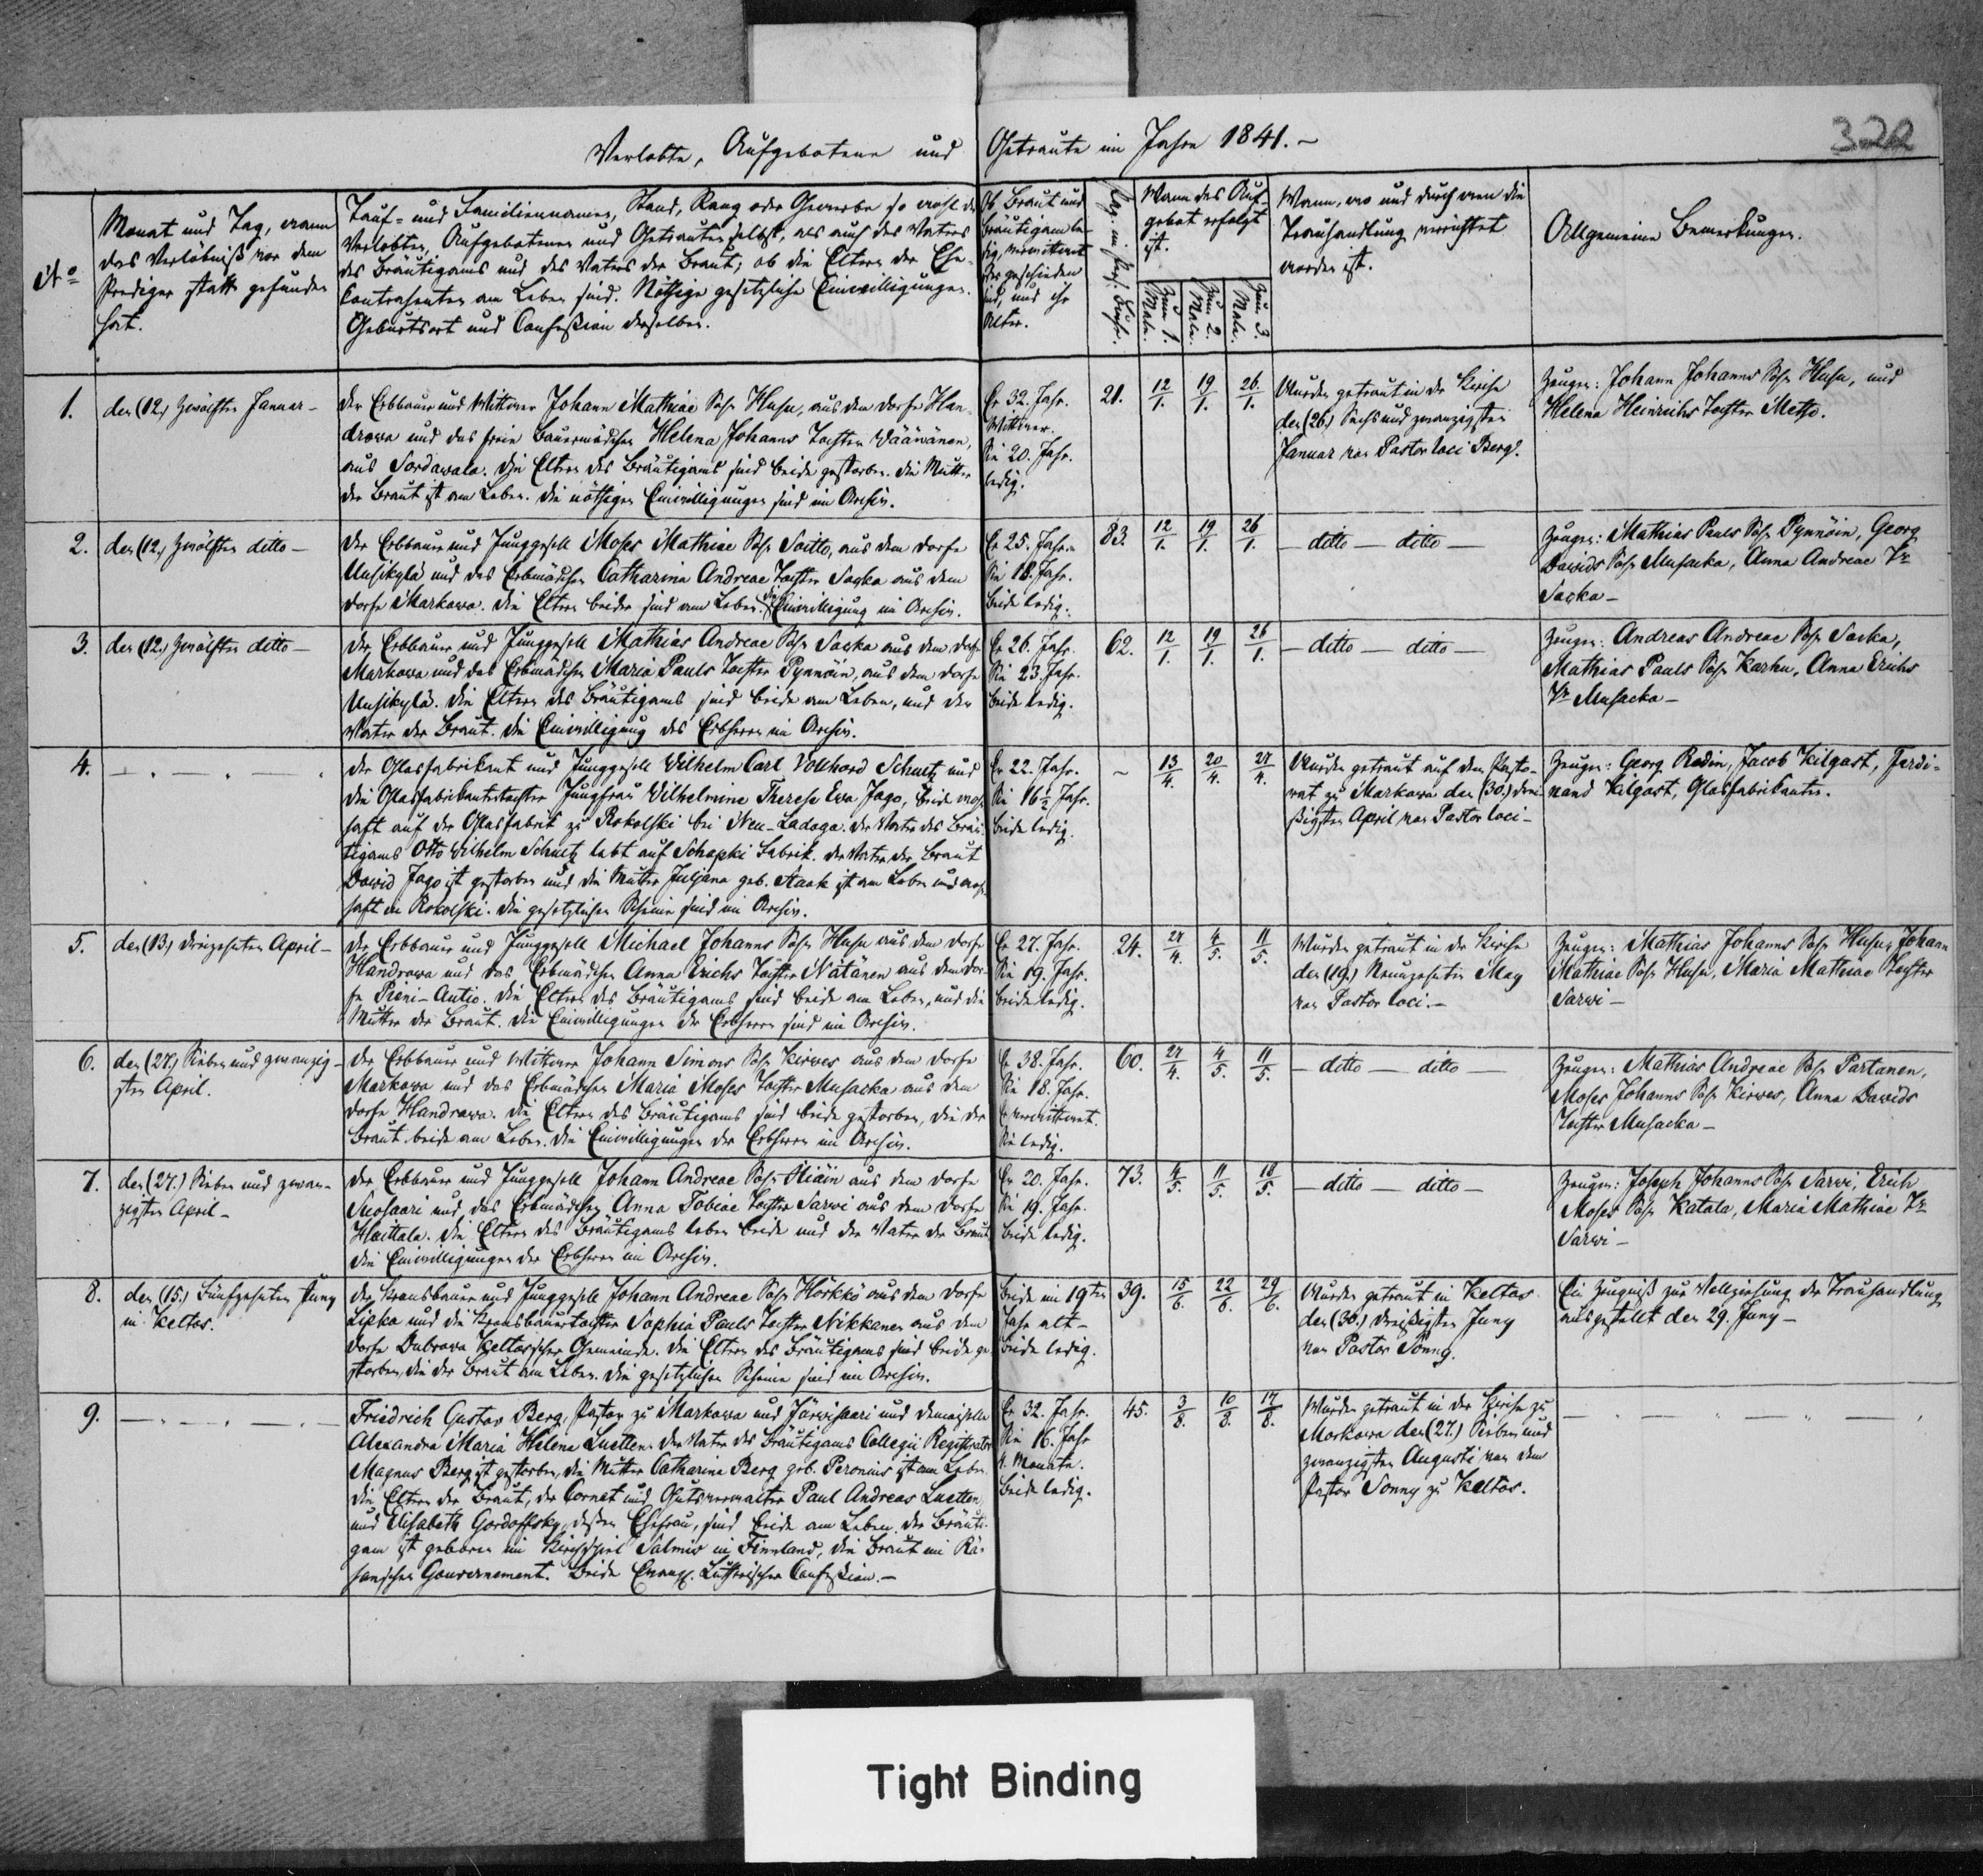 Verlobte, Aufgebotene und Getraute im Jahre 1841.
322
No
Monat und Tag, wann
das Verlöbniß vor dem
Prediger statt gefunden
hat.
Tauf- und Familiennamen, Stand, Rang oder Gewerbe so wohl der
Verlobten, Aufgebotenen und Getrauten selbst, als auch des Vaters
des Bräutigams und des Vaters der Braut; ob die Eltern der Ehe-
Contrahenten am Leben sind. Nöthige gesetzliche Einwilligungen.
Geburtsort und Confeßion derselben.
Ob Braut und
Bräutigam le-
dig, verwittwet
oder geschieden
sind, und ihr
Alter.
Wann das Auf-
gebot erfolgt
ist.
Zum 1.
Male.
Zum 2.
Male.
Zum 3.
Male.
Wann, wo und durch wen die
Trauhandlung verrichtet
worden ist.
Allgemeine Bemerkungen.
1.
den (12.) zwölften Januar-
Der Erbbauer und Wittwer Johann Mathiae Sohn Husu, aus dem Dorfe Han-
drowa und das freie Bauermädchen Helena Johanns Tochter Wääwänen,
aus Sordawala. Die Eltern des Bräutigams sind beide gestorben. Die Mutter
der Braut ist am Leben. Die nöthigen Einwilligungen sind im Archiv.
Er 32. Jahr.
Wittwer.
Sie 20. Jahr.
ledig.
21. 12/1. 19/1. 26/1.
Wurden getraut in der Kirche
den (26.) Sechs und zwanzigsten
Januar von Pastor loci Berg.
Zeugen: Johann Johanns Sohn Husu, und
Helena Heinrichs Tochter Metso.
2.
den (12.) zwölften ditto -
Der Erbbauer und Junggesell Moses Mathiae Sohn Soitto, aus dem Dorfe
Uusikylä und das Erbmädchen Catharina Andreae Tochter Sacka aus dem
Dorfe Markowa. Die Eltern beider sind am Leben. Die Einwilligung im Archiv.
Er 25. Jahr.
Sie 18. Jahr.
Beide ledig.
83. 12/1. 19/1. 26/1.
- ditto - ditto -
Zeugen: Mathias Pauls Sohn Pynnöin, Georg
Dawids Sohn Musacka, Anna Andreae Tr
Sacka -
3.
den (12.) zwölften ditto -
Der Erbbauer und Junggesell Mathias Andreae Sohn Sacka aus dem Dorfe
Markowa und das Erbmädchen Maria Pauls Tochter Pynnöin, aus dem Dorfe
Uusikylä. Die Eltern des Bräutigams sind beide am Leben, und der
Vater der Braut. Die Einwilligung des Erbherrn im Archiv.
Er 26. Jahr.
Sie 23. Jahr.
beide ledig.
62. 12/1. 19/1. 26/1.
- ditto - ditto -
Zeugen: Andreas Andreae Sohn Sacka,
Mathias Pauls Sohn Karhu, Anna Erichs
Tr Musacka -
4.
Der Glasfabrikant und Junggesell Wilhelm Carl Vollhord Schultz und
die Glasfabrikantentochter Jungfrau Wilhelmine Therese Ewa Jago, beide wohn-
haft auf der Glasfabrik zu Rokolski bei Neu-Ladoga. Der Vater des Bräu-
tigams Otto Wilhelm Schultz lebt auf Schapki Fabrik. Der Vater der Braut
Dawid Jago ist gestorben und die Mutter Juljana geb. Staak ist am Leben und wohn-
haft in Rokolski. Die gesetzlichen Scheine sind im Archiv.
Er 22. Jahr.
Sie 16½ Jahr.
beide ledig.
13/4. 20/4. 27/4.
Wurden getraut auf dem Pasto-
rat zu Markowa den (30.) drei-
ßigsten April von Pastor loci -
Zeugen: Georg Rodin, Jacob Kilgast, Ferdi-
nand Kilgast, Glasfabrikanten.
5.
den (13.) dreizehnten April -
Der Erbbauer und Junggesell Michael Johanns Sohn Husu aus dem Dorfe
Handrowa und das Erbmädchen Anna Erichs Tochter Nätänen aus dem Dor-
fe Pieni-Autio. Die Eltern des Bräutigams sind beide am Leben, und die
Mutter der Braut. Die Einwilligungen der Erbherrn sind im Archiv.
Er 27. Jahr.
Sie 19. Jahr.
beide ledig.
24. 27/4. 4/5. 11/5.
Wurden getraut in der Kirche
den (19.) Neunzehnten May
von Pastor loci. -
Zeugen: Mathias Johanns Sohn Husu, Johann
Mathiae Sohn Husu, Maria Mathiae Tochter
Sarwi -
6.
den (27.) Sieben und zwanzig-
sten April.
Der Erbbauer und Wittwer Johann Simons Sohn Kirwes aus dem Dorfe
Markowa und das Erbmädchen Maria Moses Tochter Musacka aus dem
Dorfe Handrowa. Die Eltern des Bräutigams sind beide gestorben, die der
Braut beide am Leben. Die Einwilligungen der Erbherrn im Archiv.
Er 38. Jahr.
Sie 18. Jahr.
Er verwittwet.
Sie ledig.
60. 27/4. 4/5. 11/5.
- ditto - ditto -
Zeugen: Mathias Andreae Sohn Partanen,
Moses Johanns Sohn Kirwes, Anna Dawids
Tochter Musacka -
7.
den (27.) Sieben und zwan-
zigsten April -
Der Erbbauer und Junggesell Johann Andreae Sohn Kiäin aus dem Dorfe
Suosaari und das Erbmädchen Anna Tobiae Tochter Sarwi aus dem Dorfe
Haittala. Die Eltern des Bräutigams leben beide und der Vater der Braut.
Die Einwilligungen der Erbherrn im Archiv.
Er 20. Jahr.
Sie 19. Jahr.
beide ledig.
73. 4/5. 11/5. 18/5.
- ditto - ditto -
Zeugen: Joseph Johanns Sohn Sarwi, Erich
Moses Sohn Katala, Maria Mathiae Tr
Sarwi -
8.
den (15.) Fünfzehnten Juny
in Keltos.
Der Kronsbauer und Junggesell Johann Andreae Sohn Hörkkö aus dem Dorfe
Lipka und die Kronsbauertochter Sophia Pauls Tochter Nikkanen aus dem
Dorfe Dubrowa Keltoscher Gemeinde. Die Eltern des Bräutigams sind beide ge-
storben, die der Braut am Leben. Die gesetzlichen Scheine sind im Archiv.
Beide im 19ten
Jahr alt -
beide ledig.
39. 15/6. 22/6. 29/6.
Wurden getraut in Keltos
den (30.) dreißigsten Juny
von Pastor Sonny.
Ein Zeugniß zur Vollziehung der Trauhandlung
ausgestellt den 29. Juny -
9.
Friedrich Gustav Berg, Pastor zu Markowa und Järwisaari und Demoiselle
Alexandra Maria Helena Luetten. Der Vater des Bräutigams Collegii Registrator
Magnus Berg ist gestorben, die Mutter Catharina Berg geb. Peronius ist am Leben.
Die Eltern der Braut, der Cornet und Gutsverwalter Paul Andreas Luetten,
und Elisabeth Gordoffsky, deßen Ehefrau, sind beide am Leben. Der Bräuti-
gam ist geboren im Kirchspiel Salmis in Finnland, die Braut im Rä-
sanschen Gouvernement. Beide Evangl. Lutherischer Confeßion. -
Er 32. Jahr.
Sie 16. Jahr
Monate.
beide ledig.
45. 3/8. 10/8. 17/8.
Wurden getraut in der Kirche zu
Markowa den (27.) Sieben und
zwanzigsten Augusti von dem
Pastor Sonny zu Keltos.
Tight Binding